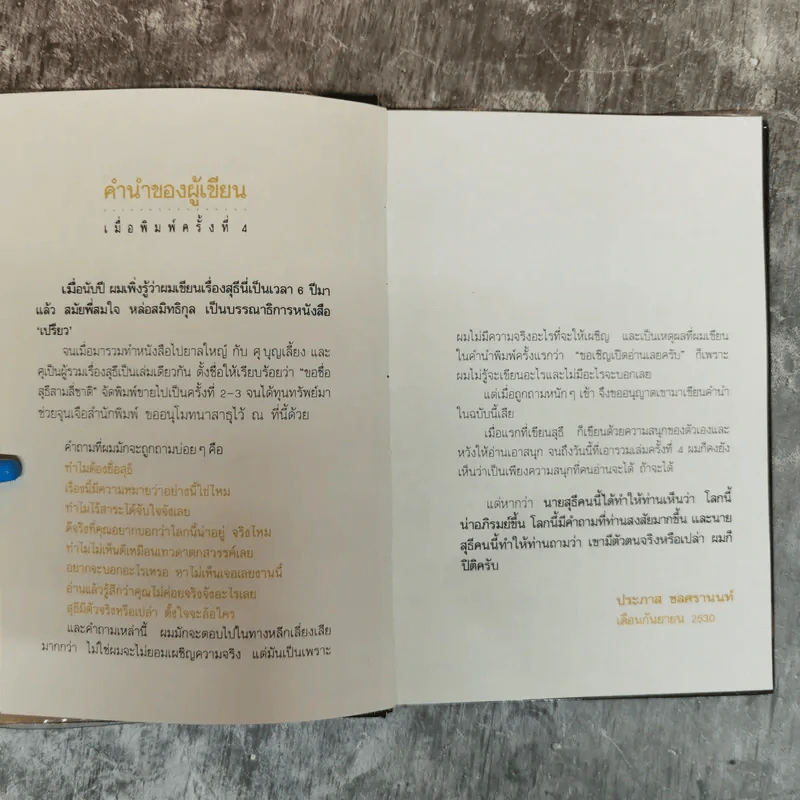 คำนำของผู้เขียน
เมื่อพิมพ์ครั้งที่ 4
เมื่อนับปี ผมเพิ่งรู้ว่าผมเขียนเรื่องสุธีนี่เป็นเวลา 6 ปีมา
แล้ว สมัยพี่สมใจ หล่อสมิทธิกุล เป็นบรรณาธิการหนังสือ
‘เปรียว’
จนเมื่อมารวมทำหนังสือไปยาลใหญ่ กับ ศุ บุญเลี้ยง และ
ศุเป็นผู้รวมเรื่องสุธีเป็นเล่มเดียวกัน ตั้งชื่อให้เรียบร้อยว่า “ขอชื่อ
สุธีสามสี่ชาติ” จัดพิมพ์ขายไปเป็นครั้งที่ 2–3 จนได้ทุนทรัพย์มา
ช่วยจุนเจือสำนักพิมพ์ ขออนุโมทนาสาธุไว้ ณ ที่นี้ด้วย
คำถามที่ผมมักจะถูกถามบ่อย ๆ คือ
ทำไมต้องชื่อสุธี
เรื่องนี้มีความหมายว่าอย่างนี้ใช่ไหม
ทำไมไร้สาระได้จับใจจังเลย
ดีจริงที่คุณอยากบอกว่าโลกนี้น่าอยู่ จริงไหม
ทำไมไม่เห็นตีเหมือนเทวดาตกสวรรค์เลย
อยากจะบอกอะไรเหรอ หาไม่เห็นเจอเลยงานนี้
อ่านแล้วรู้สึกว่าคุณไม่ค่อยจริงจังอะไรเลย
สุธีมีตัวจริงหรือเปล่า ตั้งใจจะล้อใคร
และคำถามเหล่านี้ ผมมักจะตอบไปในทางหลีกเลี่ยงเสีย
มากกว่า ไม่ใช่ผมจะไม่ยอมเผชิญความจริง แต่มันเป็นเพราะ
ผมไม่มีความจริงอะไรที่จะให้เผชิญ และเป็นเหตุผลที่ผมเขียน
ในคำนำพิมพ์ครั้งแรกว่า “ขอเชิญเปิดอ่านเลยครับ” ก็เพราะ
ผมไม่รู้จะเขียนอะไรและไม่มีอะไรจะบอกเลย
แต่เมื่อถูกถามหนัก ๆ เข้า จึงขออนุญาตเขามาเขียนคำนำ
ในฉบับนี้เสีย
เมื่อแรกที่เขียนสุธี ก็เขียนด้วยความสนุกของตัวเองและ
หวังให้อ่านเอาสนุก จนถึงวันนี้ที่เอารวมเล่มครั้งที่ 4 ผมก็คงยัง
เห็นว่าเป็นเพียงความสนุกที่คนอ่านจะได้ ถ้าจะได้
แต่หากว่า นายสุธีคนนี้ได้ทำให้ท่านเห็นว่า โลกนี้
น่าอภิรมย์ขึ้น โลกนี้มีคำถามที่ท่านสงสัยมากขึ้น และนาย
สุธีคนนี้ทำให้ท่านถามว่า เขามีตัวตนจริงหรือเปล่า ผมก็
ปิติครับ
ประภาส ชลศรานนท์
เดือนกันยายน 2530